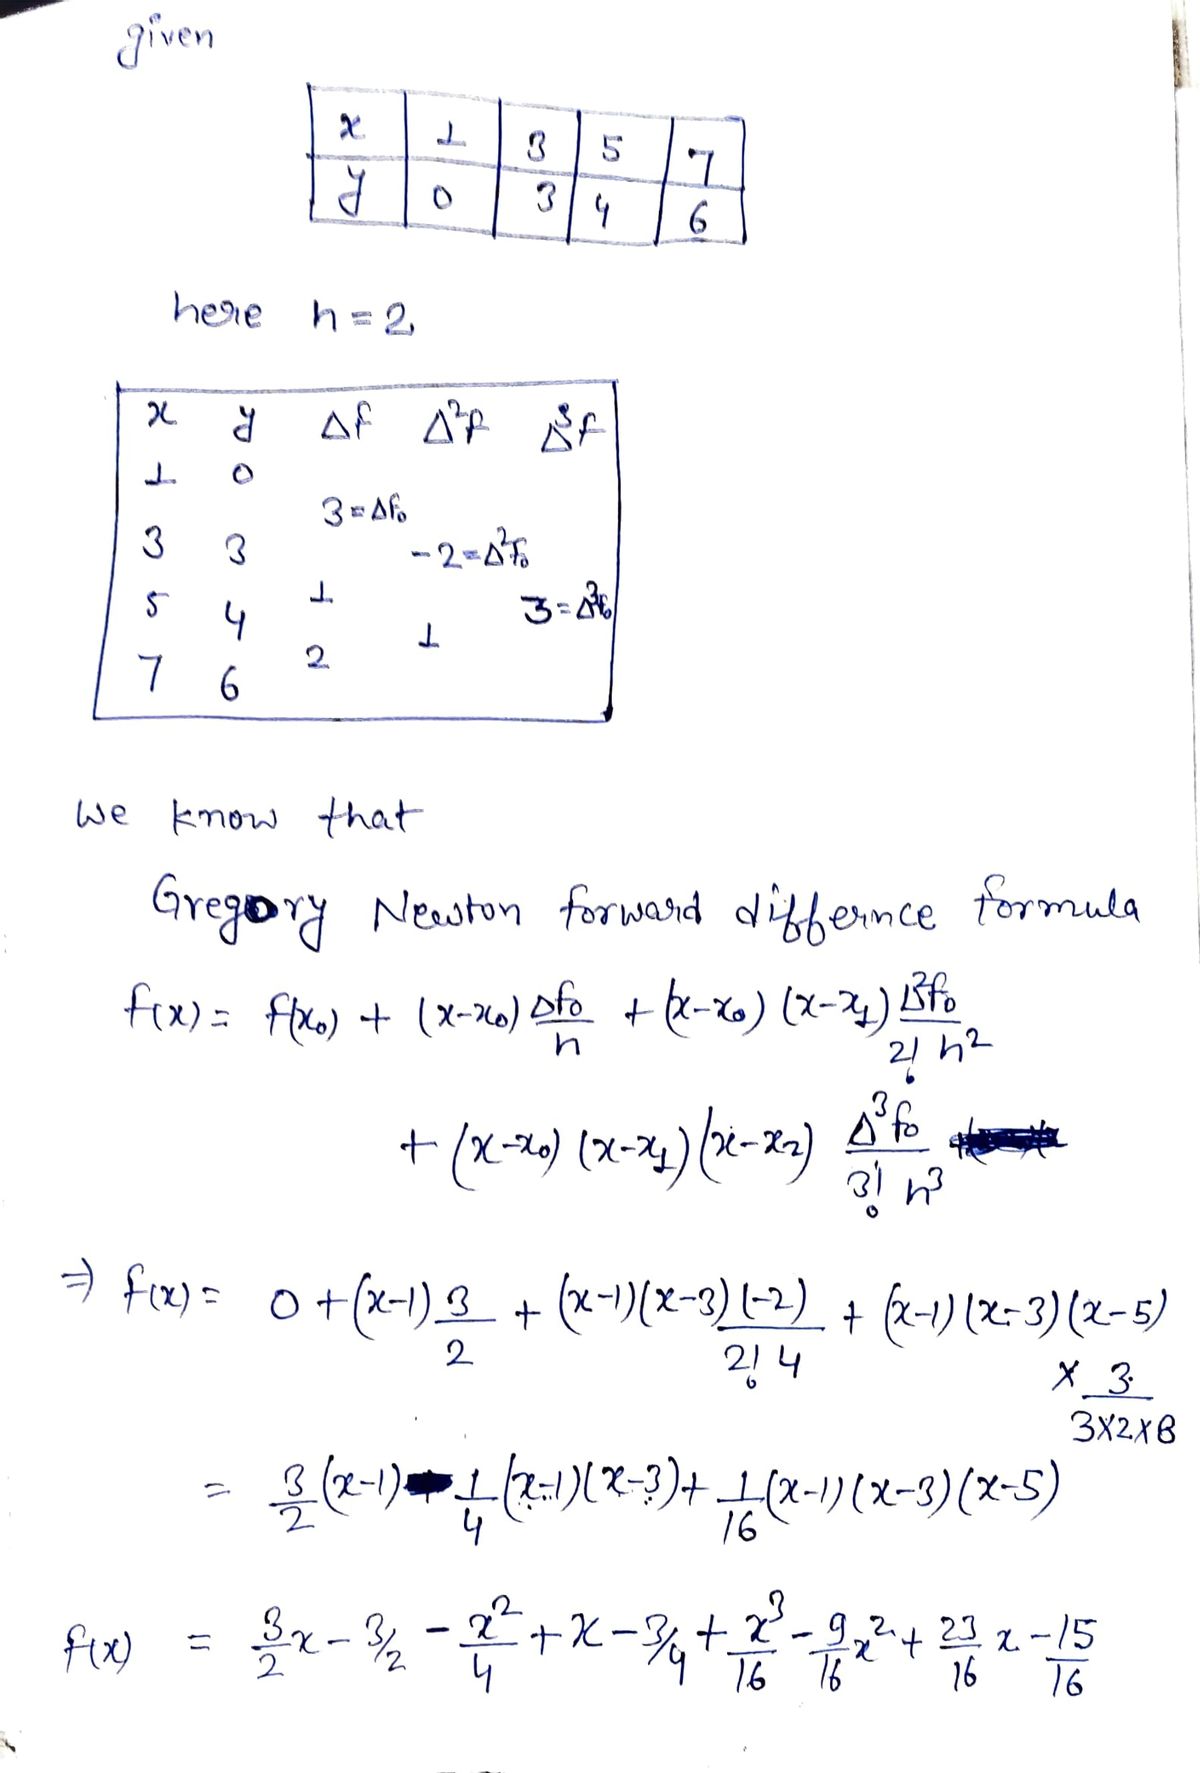 given
x 1 3 5 7
y 0 3 4 6
here h=2
x y Δf Δ²f Δ³f
1 0
3=Δf₀
3 3 -2=Δ²f₀
5 4 1 3=Δ³f₀
1
7 6 2
We know that
Gregory Newton forward differnce formula
f(x) = f(x₀) + (x-x₀) Δf₀/h + (x-x₀) (x-x₁) Δ²f₀/2! h²
+ (x-x₀) (x-x₁) (x-x₂) Δ³f₀/3! h³
⇒ f(x) = 0 + (x-1) 3/2 + (x-1)(x-3)(-2)/2! 4 + (x-1)(x-3)(x-5)
× 3/3×2×8
= 3/2 (x-1) - 1/4 (x-1)(x-3) + 1/16 (x-1)(x-3)(x-5)
f(x) = 3/2 x - 3/2 - x²/4 + x - 3/4 + x³/16 - 9/16 x² + 23/16 x - 15/16